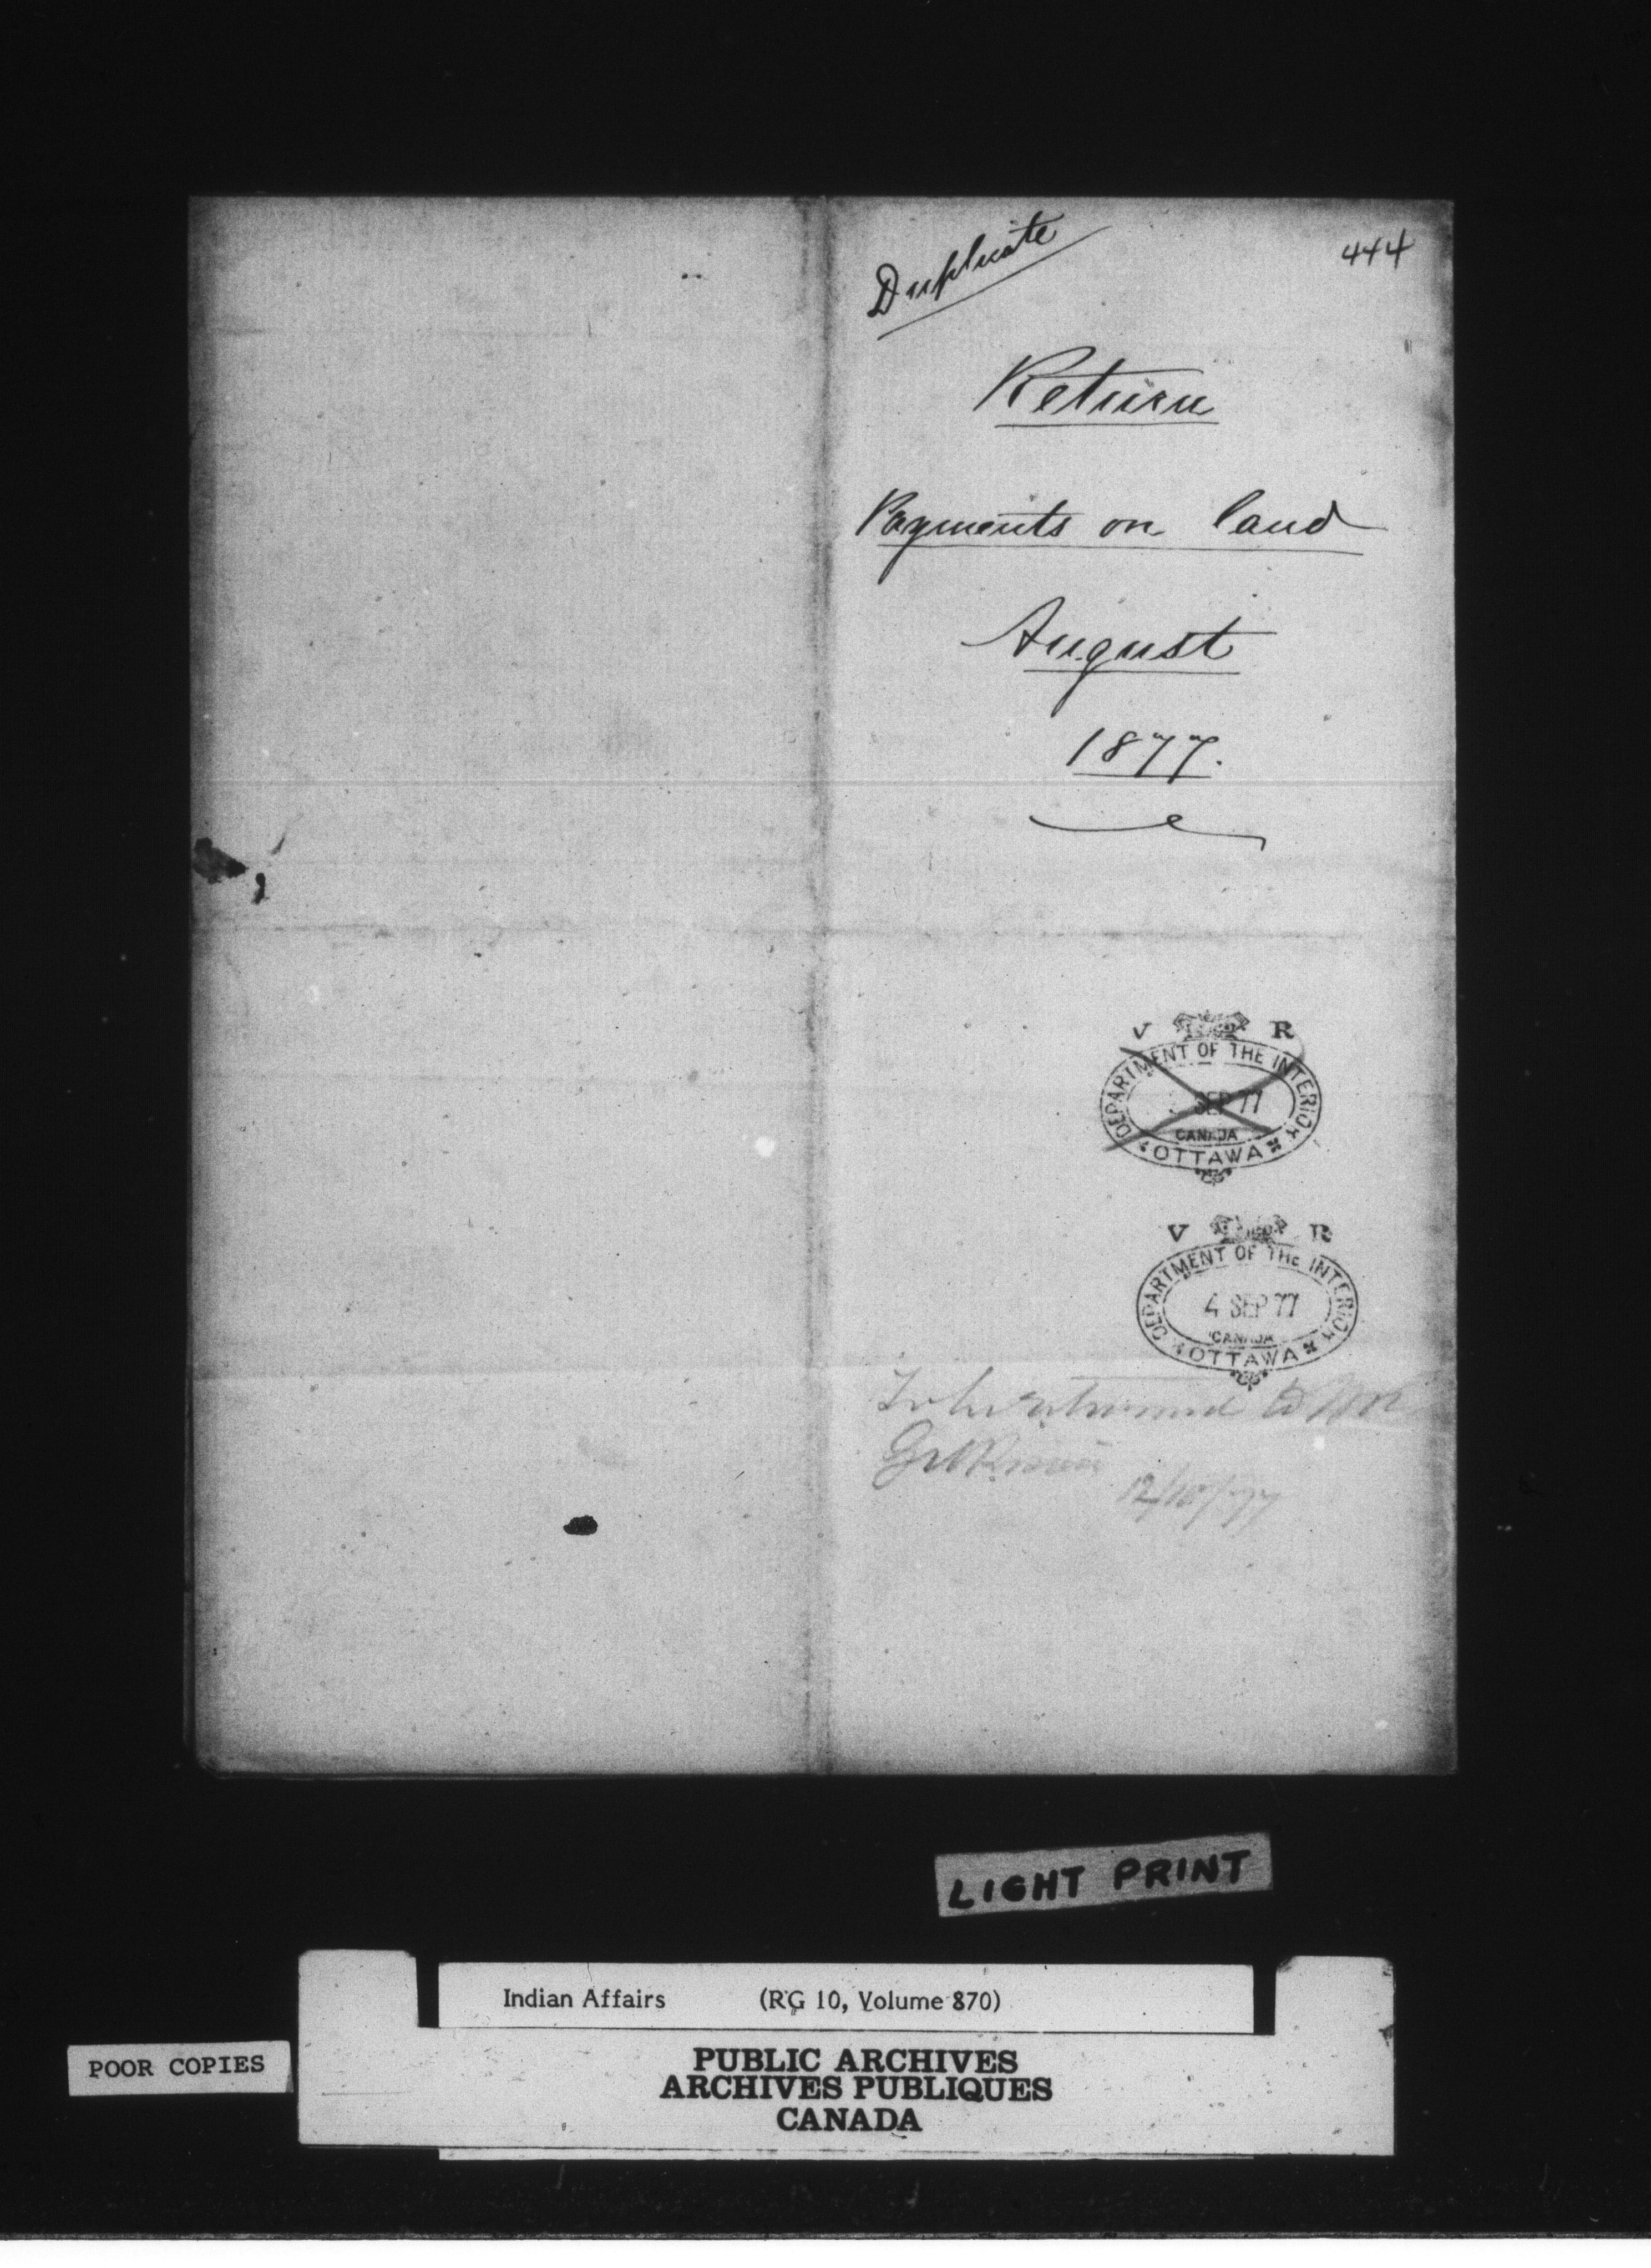 Duplicate
444
Return
Payments on land
August
1877.
V R
DEPARTMENT OF THE INTERIOR
SEP 77
CANADA
OTTAWA
V R
DEPARTMENT OF THE INTERIOR
4 SEP 77
CANADA
OTTAWA
To be returned to Mr
12/10/77
LIGHT PRINT
Indian Affairs (RG 10, Volume 870)
POOR COPIES
PUBLIC ARCHIVES
ARCHIVES PUBLIQUES
CANADA